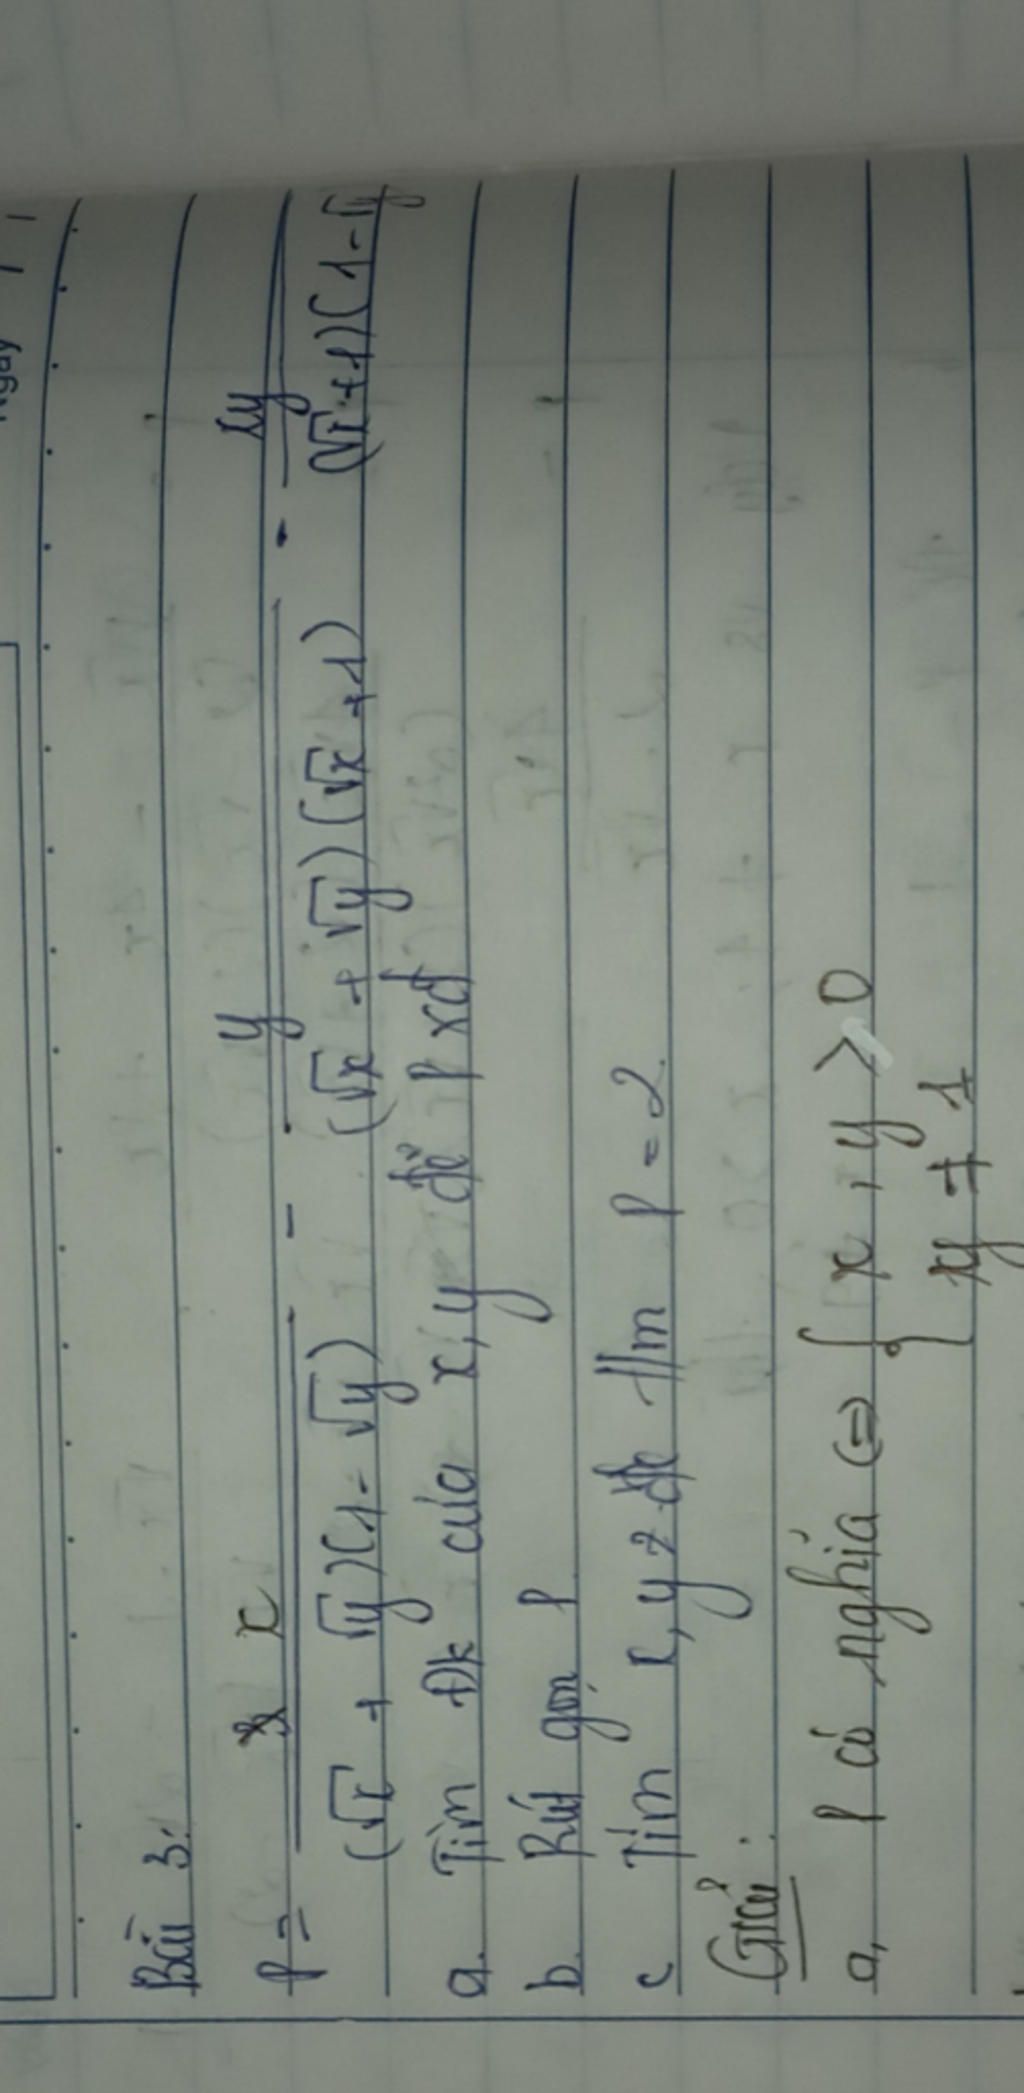 Ngày / /
Bài 3:
P = x / (√x + √y)(1 - √y) - y / (√x + √y)(√x + 1) - xy / (√x + 1)(1 - √y
a. Tìm Đk của x, y để P xđ
b. Rút gọn P
c Tìm x, y z để t/m P = 2
Giải:
a, P có nghĩa ⇔ { x , y > 0
xy ≠ 1